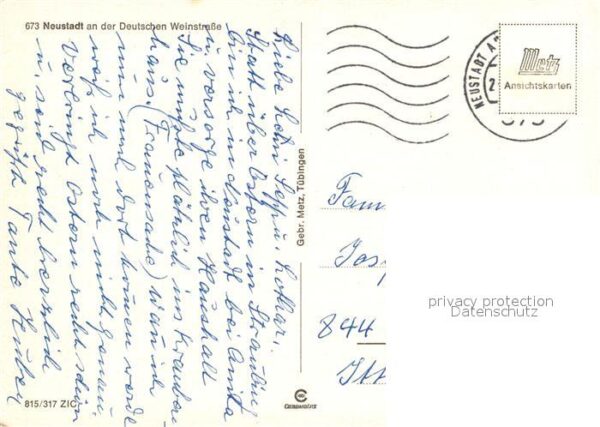 673 Neustadt an der Deutschen Weinstraße
Liebe Leni, Sepp u. Lothar,
Statt über Ostern in Straubing
bin ich in Neustadt bei Anita
u. versorge ihren Haushalt
Sie mußte plötzlich ins Kranken
haus. (Frauensache) Wann ich
nun mal dort kommen werde
weiß ich noch nicht genau.
Verbringt Ostern recht schön
u. seid recht herzlich
gegrüßt Tante
815/317 ZIC
Gebr. Metz, Tübingen
NEUSTADT A
Metz
Ansichtskarten
Fam
Jos
844
privacy protection
Datenschutz